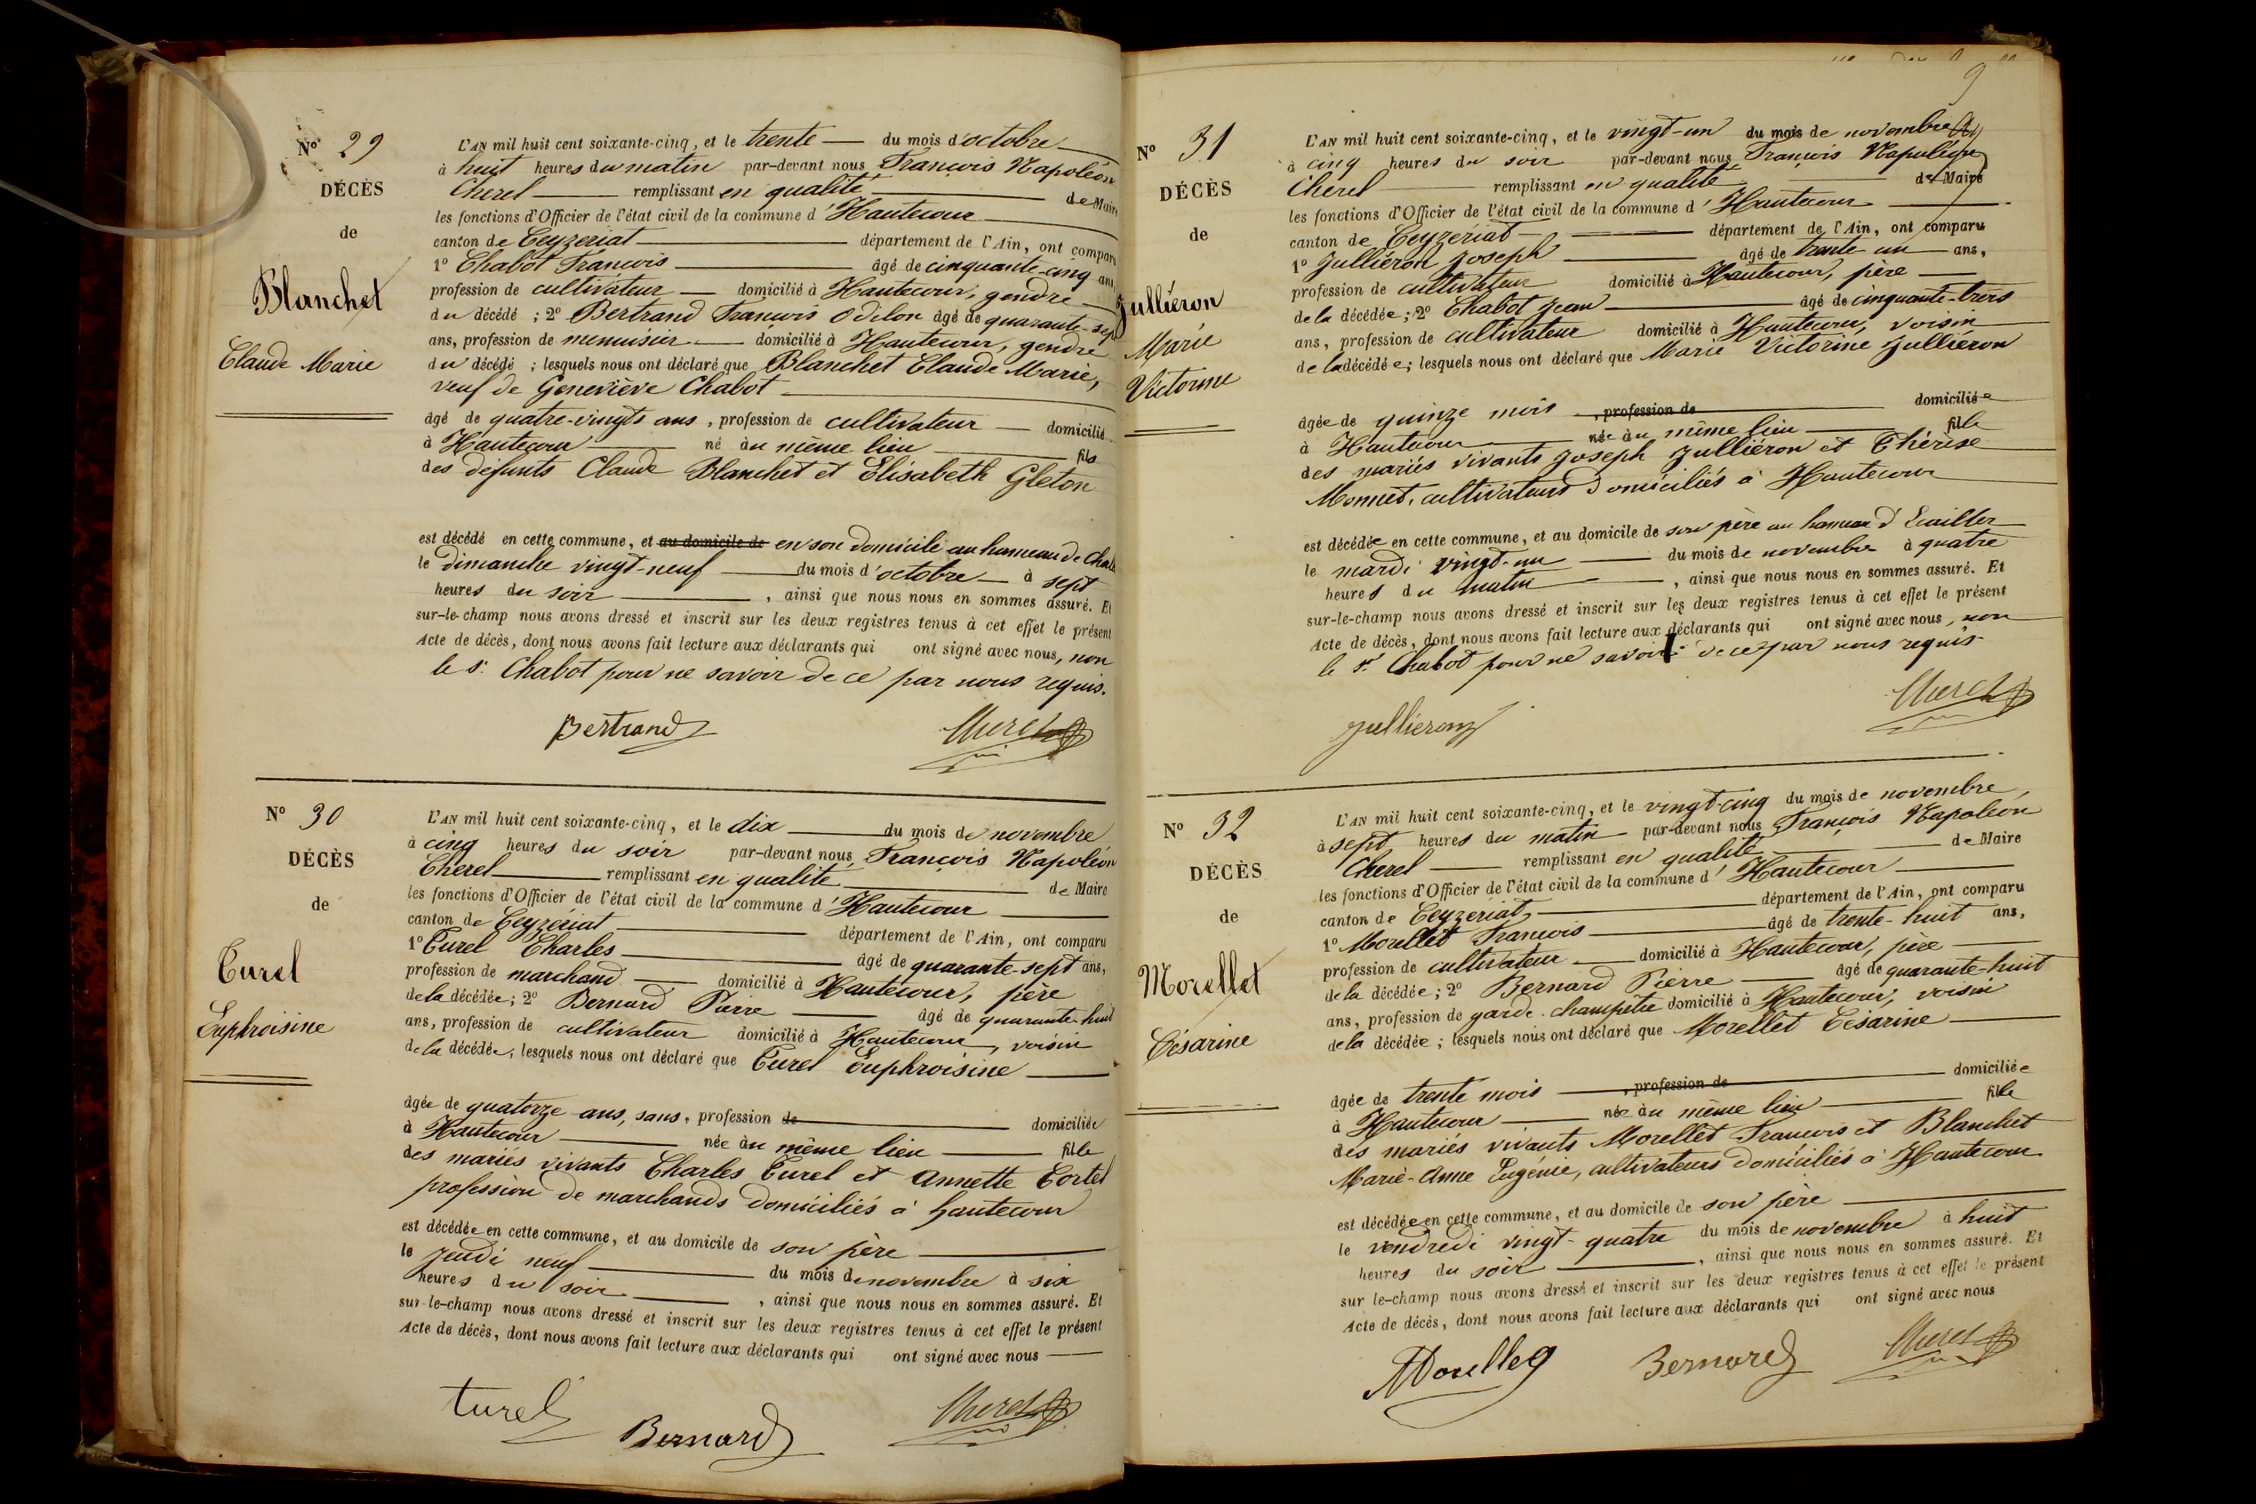 Nº 29
DÉCÈS
de
Blanchet
Claude Marie
L'AN mil huit cent soixante-cinq, et le trente du mois d'octobre
à huit heures du matin par-devant nous François Napoléon
Cherel remplissant en qualité de Maire
les fonctions d'Officier de l'état civil de la commune d'Hautecour
canton de Ceyzeriat département de l'Ain, ont comparu
1º Chabot François âgé de cinquante-cinq ans,
profession de cultivateur domicilié à Hautecour, gendre
du décédé ; 2º Bertrand François Odilon âgé de quarante-sept
ans, profession de menuisier domicilié à Hautecour, gendre
du décédé ; lesquels nous ont déclaré que Blanchet Claude Marie,
veuf de Geneviève Chabot
âgé de quatre-vingts ans, profession de cultivateur domicilié
à Hautecour né au même lieu fils
des défunts Claude Blanchet et Elisabeth Gleton
est décédé en cette commune, et au domicile de en son domicile au hameau de
le dimanche vingt-neuf du mois d'octobre à sept
heures du soir, ainsi que nous nous en sommes assuré. Et
sur-le-champ nous avons dressé et inscrit sur les deux registres tenus à cet effet le présent
Acte de décès, dont nous avons fait lecture aux déclarants qui ont signé avec nous, non
le sr. Chabot pour ne savoir de ce par nous requis.
Bertrand Cherel
Nº 30
DÉCÈS
de
Turel
Euphroisine
L'AN mil huit cent soixante-cinq, et le dix du mois de novembre
à cinq heures du soir par-devant nous, François Napoléon
Cherel remplissant en qualité de Maire
les fonctions d'Officier de l'état civil de la commune d'Hautecour
canton de Ceyzériat département de l'Ain, ont comparu
1º Turel Charles âgé de quarante-sept ans,
profession de marchand domicilié à Hautecour, père
de la décédée ; 2º Bernard Pierre âgé de quarante-huit
ans, profession de cultivateur domicilié à Hautecour, voisin
de la décédée ; lesquels nous ont déclaré que Turel Euphroisine
âgée de quatorze ans, sans, profession de domiciliée
à Hautecour née au même lieu fille
des mariés vivants Charles Turel et Annette Tortel
profession de marchands domiciliés à hautecour
est décédée en cette commune, et au domicile de son père
le jeudi neuf du mois de novembre à six
heures du soir, ainsi que nous nous en sommes assuré. Et
sur-le-champ nous avons dressé et inscrit sur les deux registres tenus à cet effet le présent
Acte de décès, dont nous avons fait lecture aux déclarants qui ont signé avec nous
turel Bernard Cherel
9
Nº 31
DÉCÈS
de
Julliéron
Marie
Victorine
L'AN mil huit cent soixante-cinq, et le vingt-un du mois de novembre
à cinq heures du soir par-devant nous François Napoléon
Cherel remplissant en qualité de Maire
les fonctions d'Officier de l'état civil de la commune d'Hautecour
canton de Ceyzeriat département de l'Ain, ont comparu
1º Julliéron Joseph âgé de trente-un ans,
profession de cultivateur domicilié à Hautecour, père
de la décédée ; 2º Chabot Jean âgé de cinquante-trois
ans, profession de cultivateur domicilié à Hautecour, voisin
de la décédée ; lesquels nous ont déclaré que Marie Victorine Julliéron
âgée de quinze mois, profession de domiciliée
à Hautecour née au même lieu fille
des mariés vivants Joseph Julliéron et Thérèse
Monnet, cultivateurs domiciliés à Hautecour
est décédée en cette commune, et au domicile de son père au hameau d'
le mardi vingt-un du mois de novembre à quatre
heures du matin, ainsi que nous nous en sommes assuré. Et
sur-le-champ nous avons dressé et inscrit sur les deux registres tenus à cet effet le présent
Acte de décès, dont nous avons fait lecture aux déclarants qui ont signé avec nous, non
le sr. Chabot pour ne savoir de ce par nous requis
Jullieron Cherel
Nº 32
DÉCÈS
de
Morellet
Césarine
L'AN mil huit cent soixante-cinq, et le vingt-cinq du mois de novembre,
à sept heures du matin par-devant nous François Napoléon
Cherel remplissant en qualité de Maire
les fonctions d'Officier de l'état civil de la commune d'Hautecour
canton de Ceyzeriat, département de l'Ain, ont comparu
1º Morellet François âgé de trente-huit ans,
profession de cultivateur domicilié à Hautecour, père
de la décédée ; 2º Bernard Pierre âgé de quarante-huit
ans, profession de garde-champêtre domicilié à Hautecour, voisin
de la décédée ; lesquels nous ont déclaré que Morellet Césarine
âgée de trente mois, profession de domiciliée
à Hautecour née au même lieu fille
des mariés vivants Morellet François et Blanchet
Marie-Anne Eugénie, cultivateurs domiciliés à Hautecour
est décédée en cette commune, et au domicile de son père
le vendredi vingt-quatre du mois de novembre à huit
heures du soir, ainsi que nous nous en sommes assuré. Et
sur le-champ nous avons dressé et inscrit sur les deux registres tenus à cet effet le présent
Acte de décès, dont nous avons fait lecture aux déclarants qui ont signé avec nous
Bernard Cherel